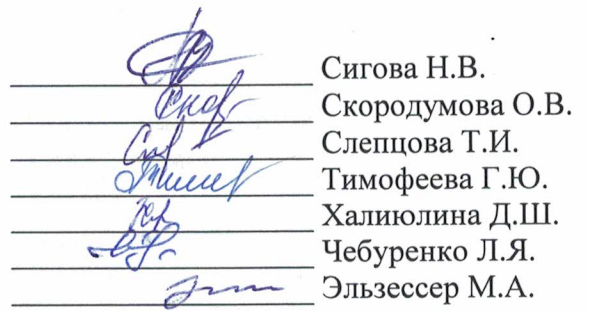 Сигова Н.В.
Скородумова О.В.
Слепцова Т.И.
Тимофеева Г.Ю.
Халиюлина Д.Ш.
Чебуренко Л.Я.
Эльзессер М.А.